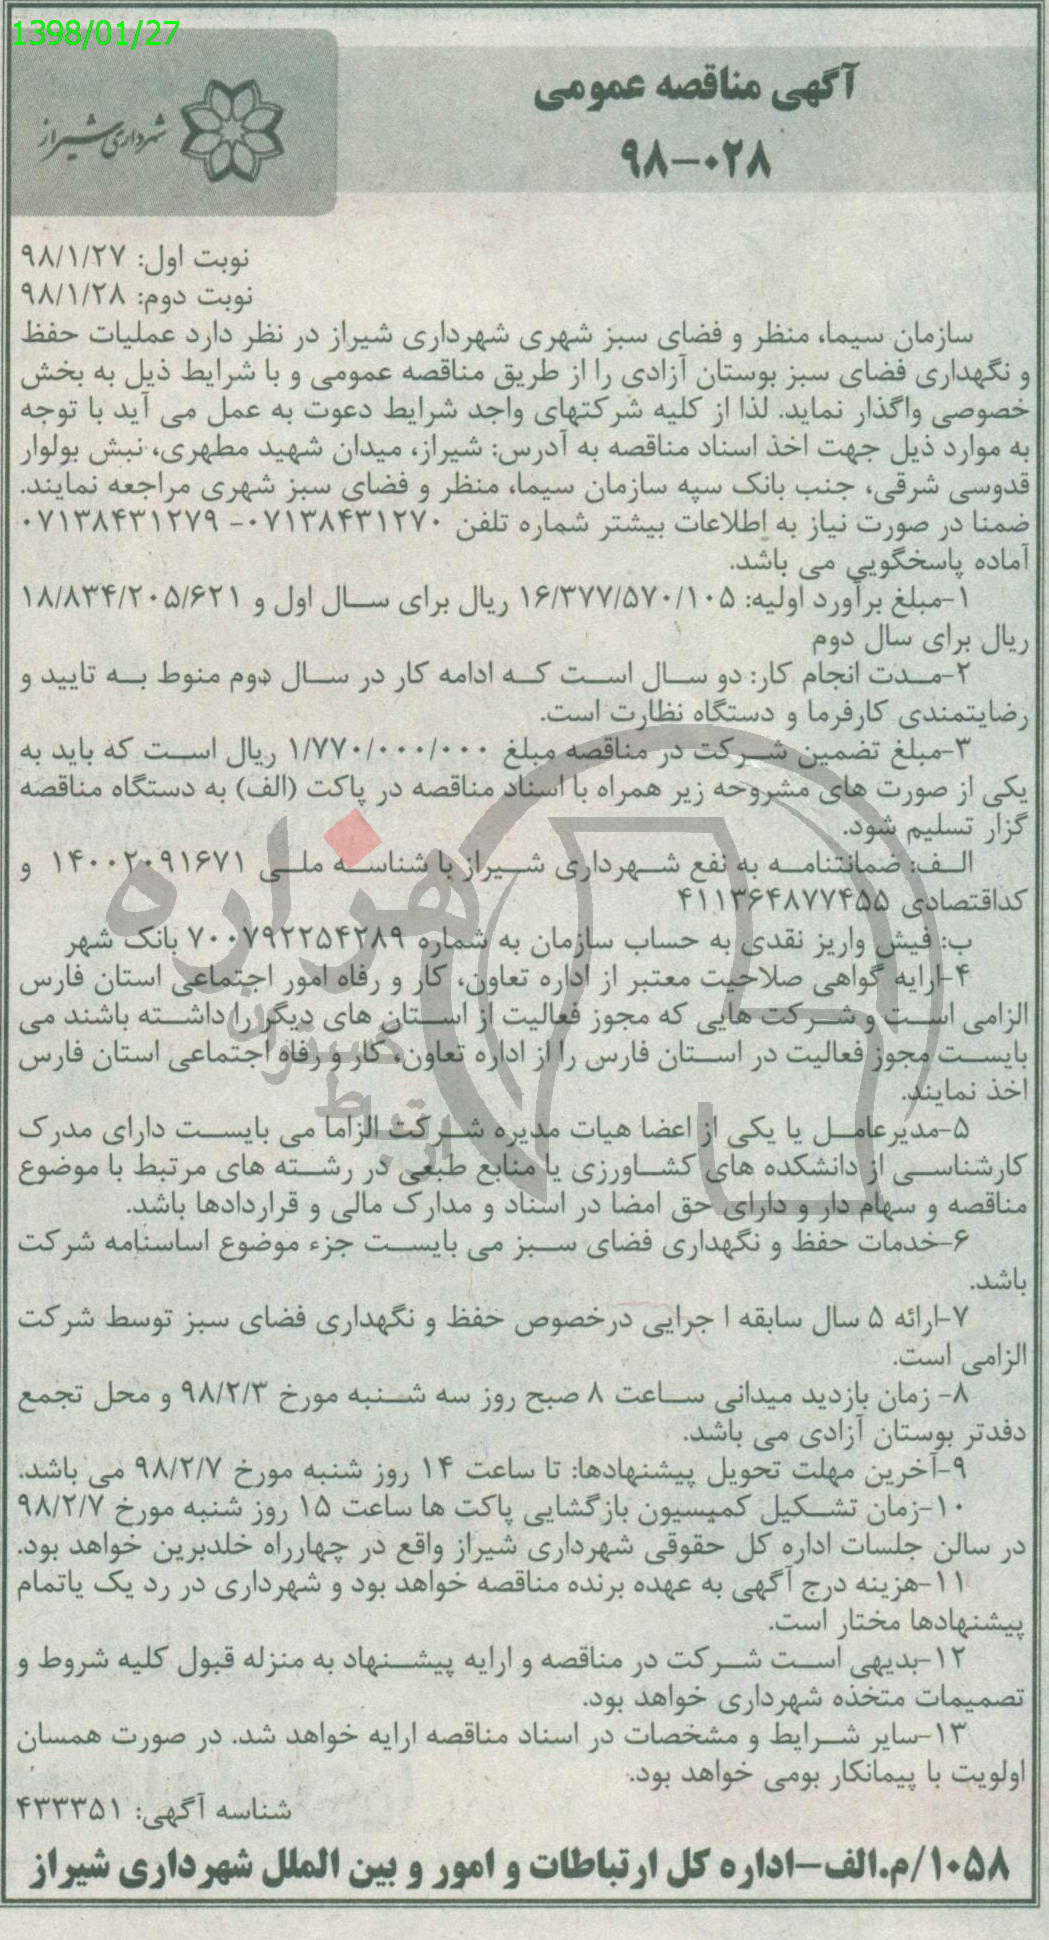 1398/01/27
شهرداری شیراز
آگهی مناقصه عمومی
۹۸-۰۲۸
نوبت اول: ۹۸/۱/۲۷
نوبت دوم: ۹۸/۱/۲۸
سازمان سیما، منظر و فضای سبز شهری شهرداری شیراز در نظر دارد عملیات حفظ
و نگهداری فضای سبز بوستان آزادی را از طریق مناقصه عمومی و با شرایط ذیل به بخش
خصوصی واگذار نماید. لذا از کلیه شرکتهای واجد شرایط دعوت به عمل می آید با توجه
به موارد ذیل جهت اخذ اسناد مناقصه به آدرس: شیراز، میدان شهید مطهری، نبش بولوار
قدوسی شرقی، جنب بانک سپه سازمان سیما، منظر و فضای سبز شهری مراجعه نمایند.
ضمنا در صورت نیاز به اطلاعات بیشتر شماره تلفن ۰۷۱۳۸۴۳۱۲۷۰- ۰۷۱۳۸۴۳۱۲۷۹
آماده پاسخگویی می باشد.
۱-مبلغ برآورد اولیه: ۱۶/۳۷۷/۵۷۰/۱۰۵ ریال برای سال اول و ۱۸/۸۳۴/۲۰۵/۶۲۱
ریال برای سال دوم
۲-مدت انجام کار: دو سال است که ادامه کار در سال دوم منوط به تایید و
رضایتمندی کارفرما و دستگاه نظارت است.
۳-مبلغ تضمین شرکت در مناقصه مبلغ ۱/۷۷۰/۰۰۰/۰۰۰ ریال است که باید به
یکی از صورت های مشروحه زیر همراه با اسناد مناقصه در پاکت (الف) به دستگاه مناقصه
گزار تسلیم شود.
الف: ضمانتنامه به نفع شهرداری شیراز با شناسه ملی ۱۴۰۰۲۰۹۱۶۷۱ و
کداقتصادی ۴۱۱۳۶۴۸۷۷۴۵۵
ب: فیش واریز نقدی به حساب سازمان به شماره ۷۰۰۷۹۲۲۵۴۲۸۹ بانک شهر
۴-ارایه گواهی صلاحیت معتبر از اداره تعاون، کار و رفاه امور اجتماعی استان فارس
الزامی است و شرکت هایی که مجوز فعالیت از استان های دیگر را داشته باشند می
بایست مجوز فعالیت در استان فارس را از اداره تعاون، کار و رفاه اجتماعی استان فارس
اخذ نمایند.
۵-مدیرعامل یا یکی از اعضا هیات مدیره شرکت الزاما می بایست دارای مدرک
کارشناسی از دانشکده های کشاورزی یا منابع طبعی در رشته های مرتبط با موضوع
مناقصه و سهام دار و دارای حق امضا در اسناد و مدارک مالی و قراردادها باشد.
۶-خدمات حفظ و نگهداری فضای سبز می بایست جزء موضوع اساسنامه شرکت
باشد.
۷-ارائه ۵ سال سابقه ا جرایی درخصوص حفظ و نگهداری فضای سبز توسط شرکت
الزامی است.
۸- زمان بازدید میدانی ساعت ۸ صبح روز سه شنبه مورخ ۹۸/۲/۳ و محل تجمع
دفدتر بوستان آزادی می باشد.
۹-آخرین مهلت تحویل پیشنهادها: تا ساعت ۱۴ روز شنبه مورخ ۹۸/۲/۷ می باشد.
۱۰-زمان تشکیل کمیسیون بازگشایی پاکت ها ساعت ۱۵ روز شنبه مورخ ۹۸/۲/۷
در سالن جلسات اداره کل حقوقی شهرداری شیراز واقع در چهارراه خلدبرین خواهد بود.
۱۱-هزینه درج آگهی به عهده برنده مناقصه خواهد بود و شهرداری در رد یک یاتمام
پیشنهادها مختار است.
۱۲-بدیهی است شرکت در مناقصه و ارایه پیشنهاد به منزله قبول کلیه شروط و
تصمیمات متخذه شهرداری خواهد بود.
۱۳-سایر شرایط و مشخصات در اسناد مناقصه ارایه خواهد شد. در صورت همسان
اولویت با پیمانکار بومی خواهد بود.
شناسه آگهی: ۴۳۳۳۵۱
۱۰۵۸/م.الف-اداره کل ارتباطات و امور و بین الملل شهرداری شیراز
هزاره